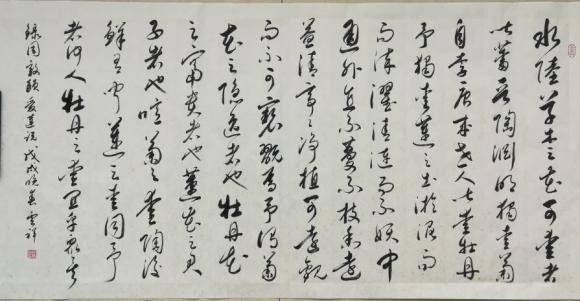 水陸草木之花可愛者
甚蕃晉陶淵明獨愛菊
自李唐来世人甚愛牡丹
予獨愛蓮之出淤泥而
不染濯清漣而不妖中
通外直不蔓不枝香遠
益清亭亭淨植可遠觀
而不可褻翫焉予謂菊
花之隐逸者也牡丹花
之富貴者也蓮花之君
子者也噫菊之愛陶後
鮮有聞蓮之愛同予
者何人牡丹之愛宜乎衆矣
録周敦頤愛蓮説戊戌雲祥